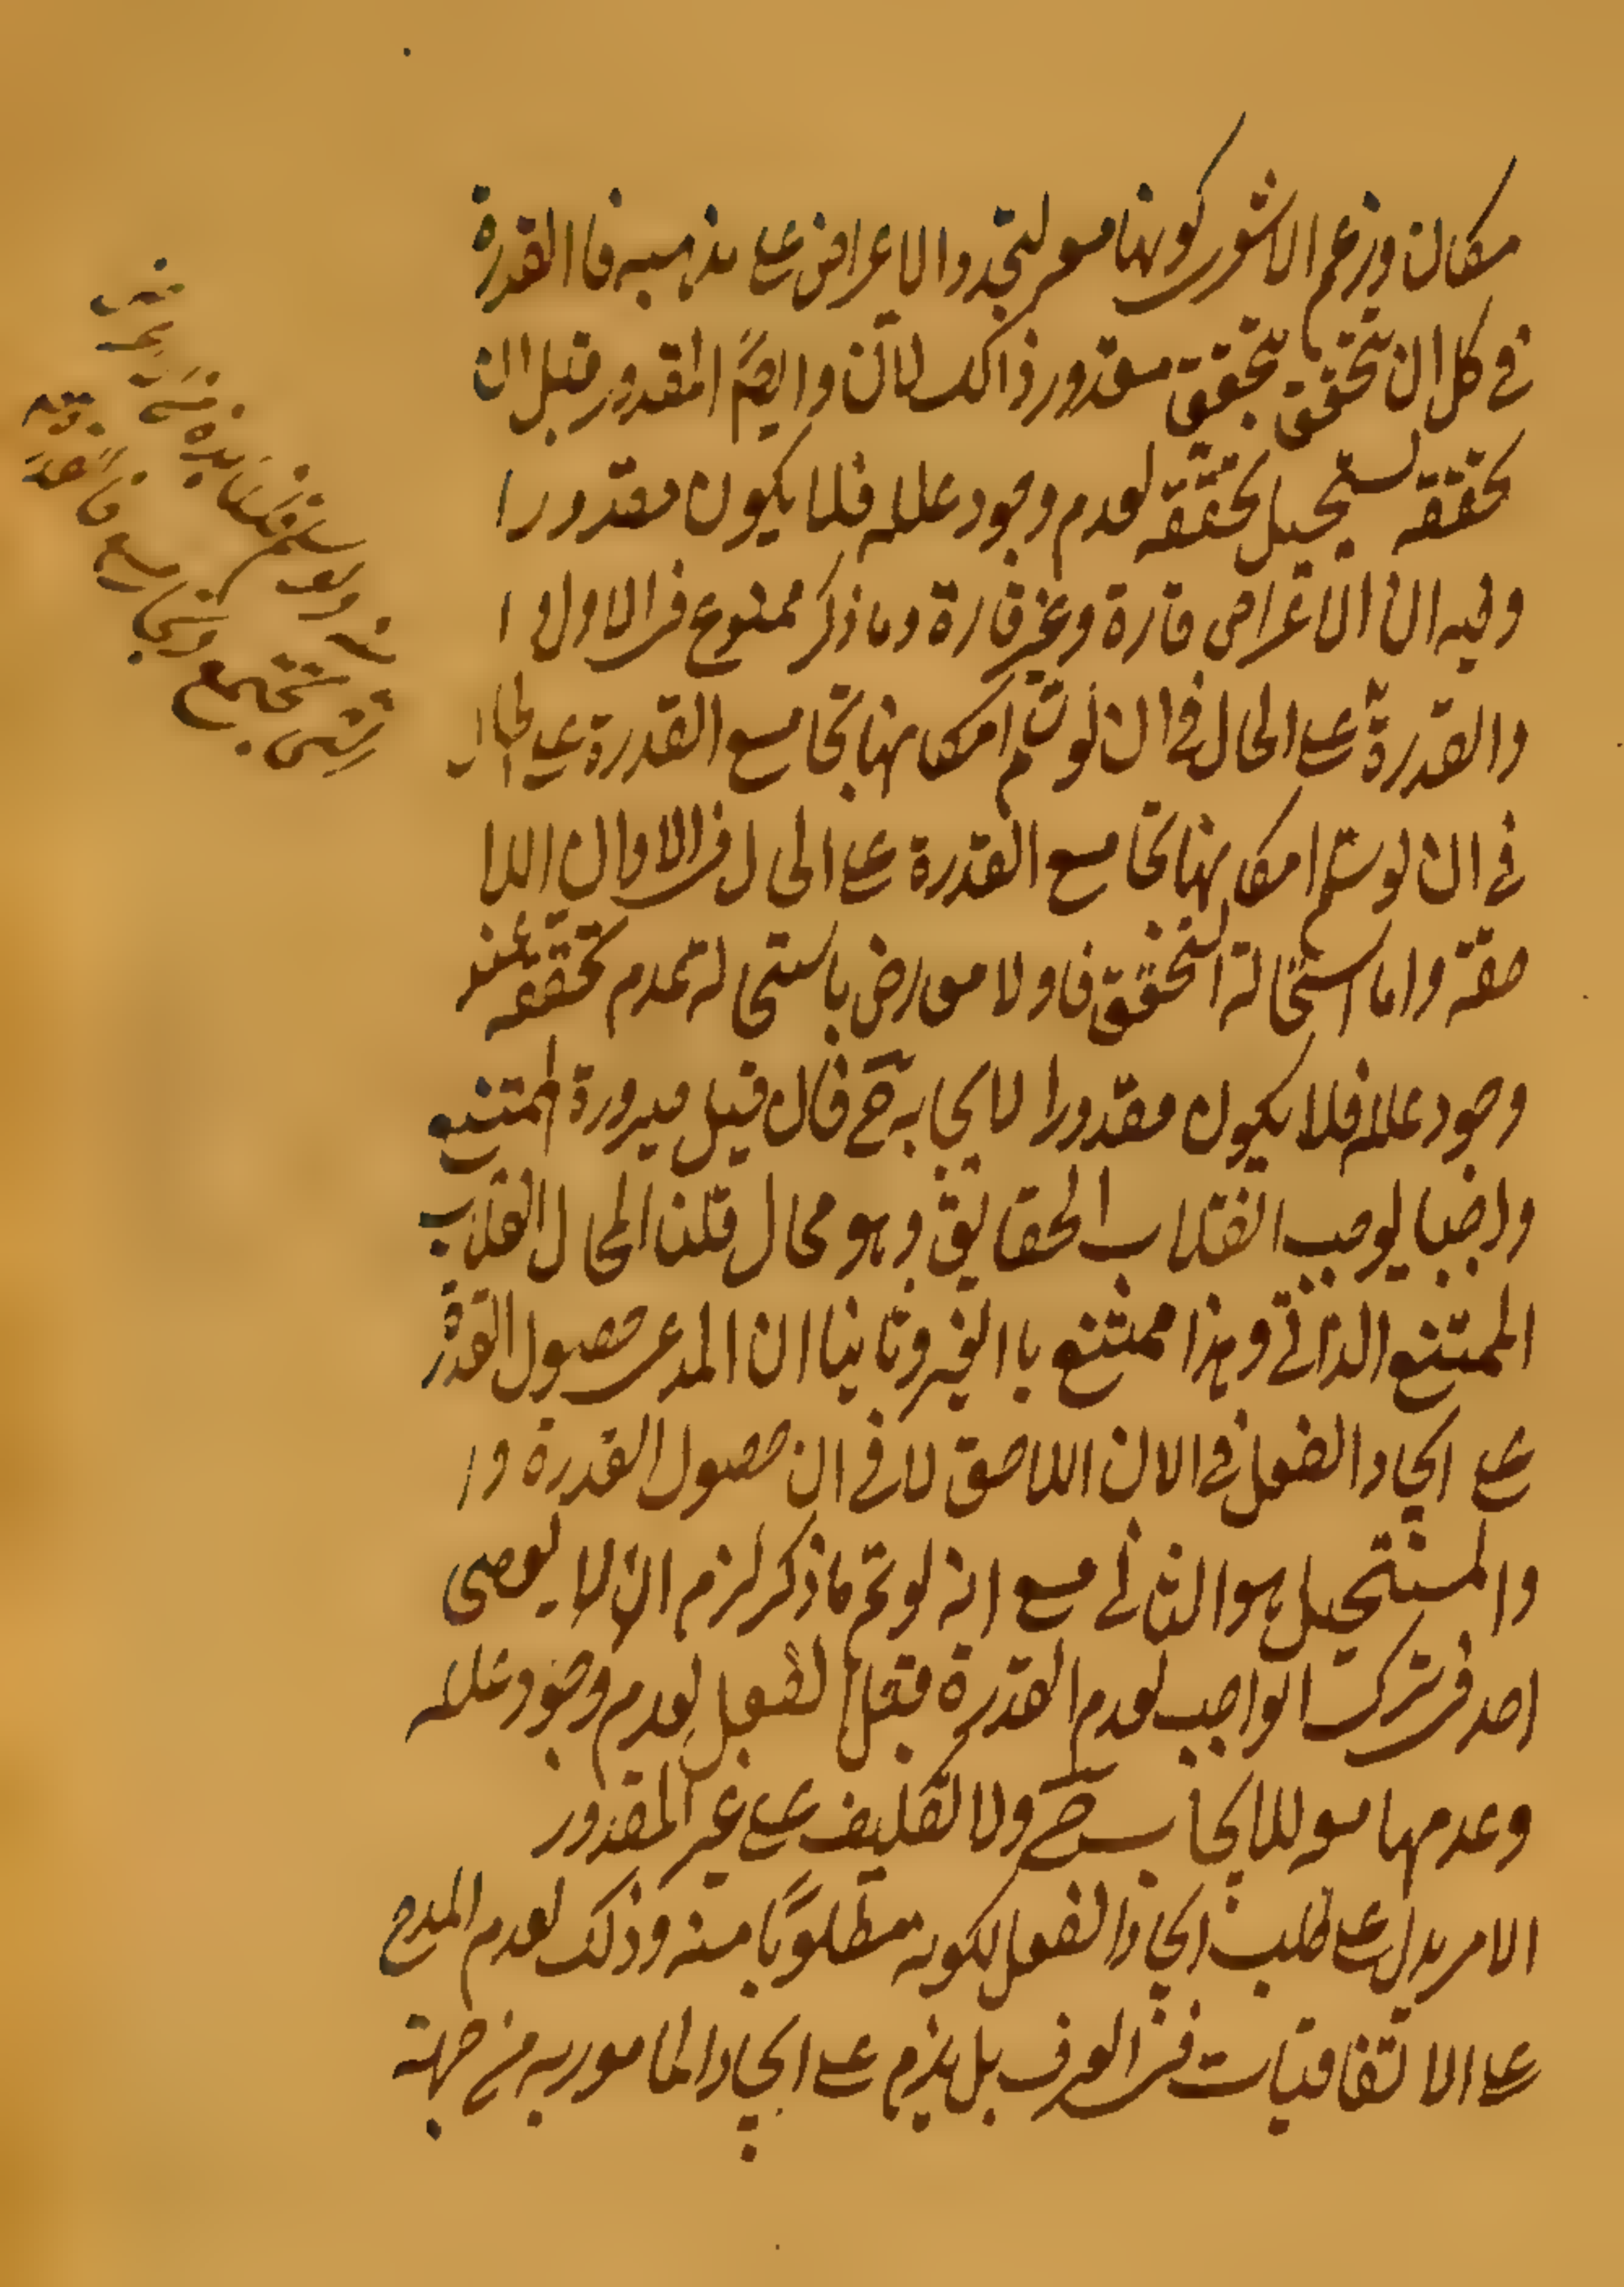 مكان وزعم الاشعرى كونها مع لتجدد الاعراض على مذهبه فا القدرة
فى كل ان تحقق تحقق مقدور ذاك الان وايضً المقدور قبل ان
تحققه لستحيل تحققه لعدم وجود علله فلا يكون مقدورا
وفيه ان الاعراض قارة وغير قارة وما ذكر ممنوع فى الاول و ا
والقدرة على الحال فى ان لو تم امكانها تجامع القدرة على الحال
فى ان لو تم امكانها تجامع القدرة على الحال فى الاوان اللا
حقة واما استحالة التحقق فاولا معارض باستحالة عدم تحققه عند
وجود علله فلا يكون مقدورا لايجابه ح فان قيل صيرورة الممتنع
واجبا يوجب انقلاب الحقايق وهو محال قلنا المحال انقلاب
الممتنع الذاتى وهذا ممتنع باالغير وثانيا ان المدعى حصول القدرة
على ايجاد الفعل فى الان اللاحق لا فى ان حصول القدرة و ا
والمستحيل هو الثانى مع انه لو تم ما ذكر لزم ان لا يعصى
احد فى ترك الواجب لعدم القدرة قبل الفعل لعدم وجود علله
وعدمها مع للايجاب ح ولا تكليف على غير المقدور
الامر يدل على طلب ايجاد الفعل لكونه مطلوبًا منه وذلك لعدم المدح
على الاتفاقيات فى العرف بل يذم على ايجاد المامور به من جهة